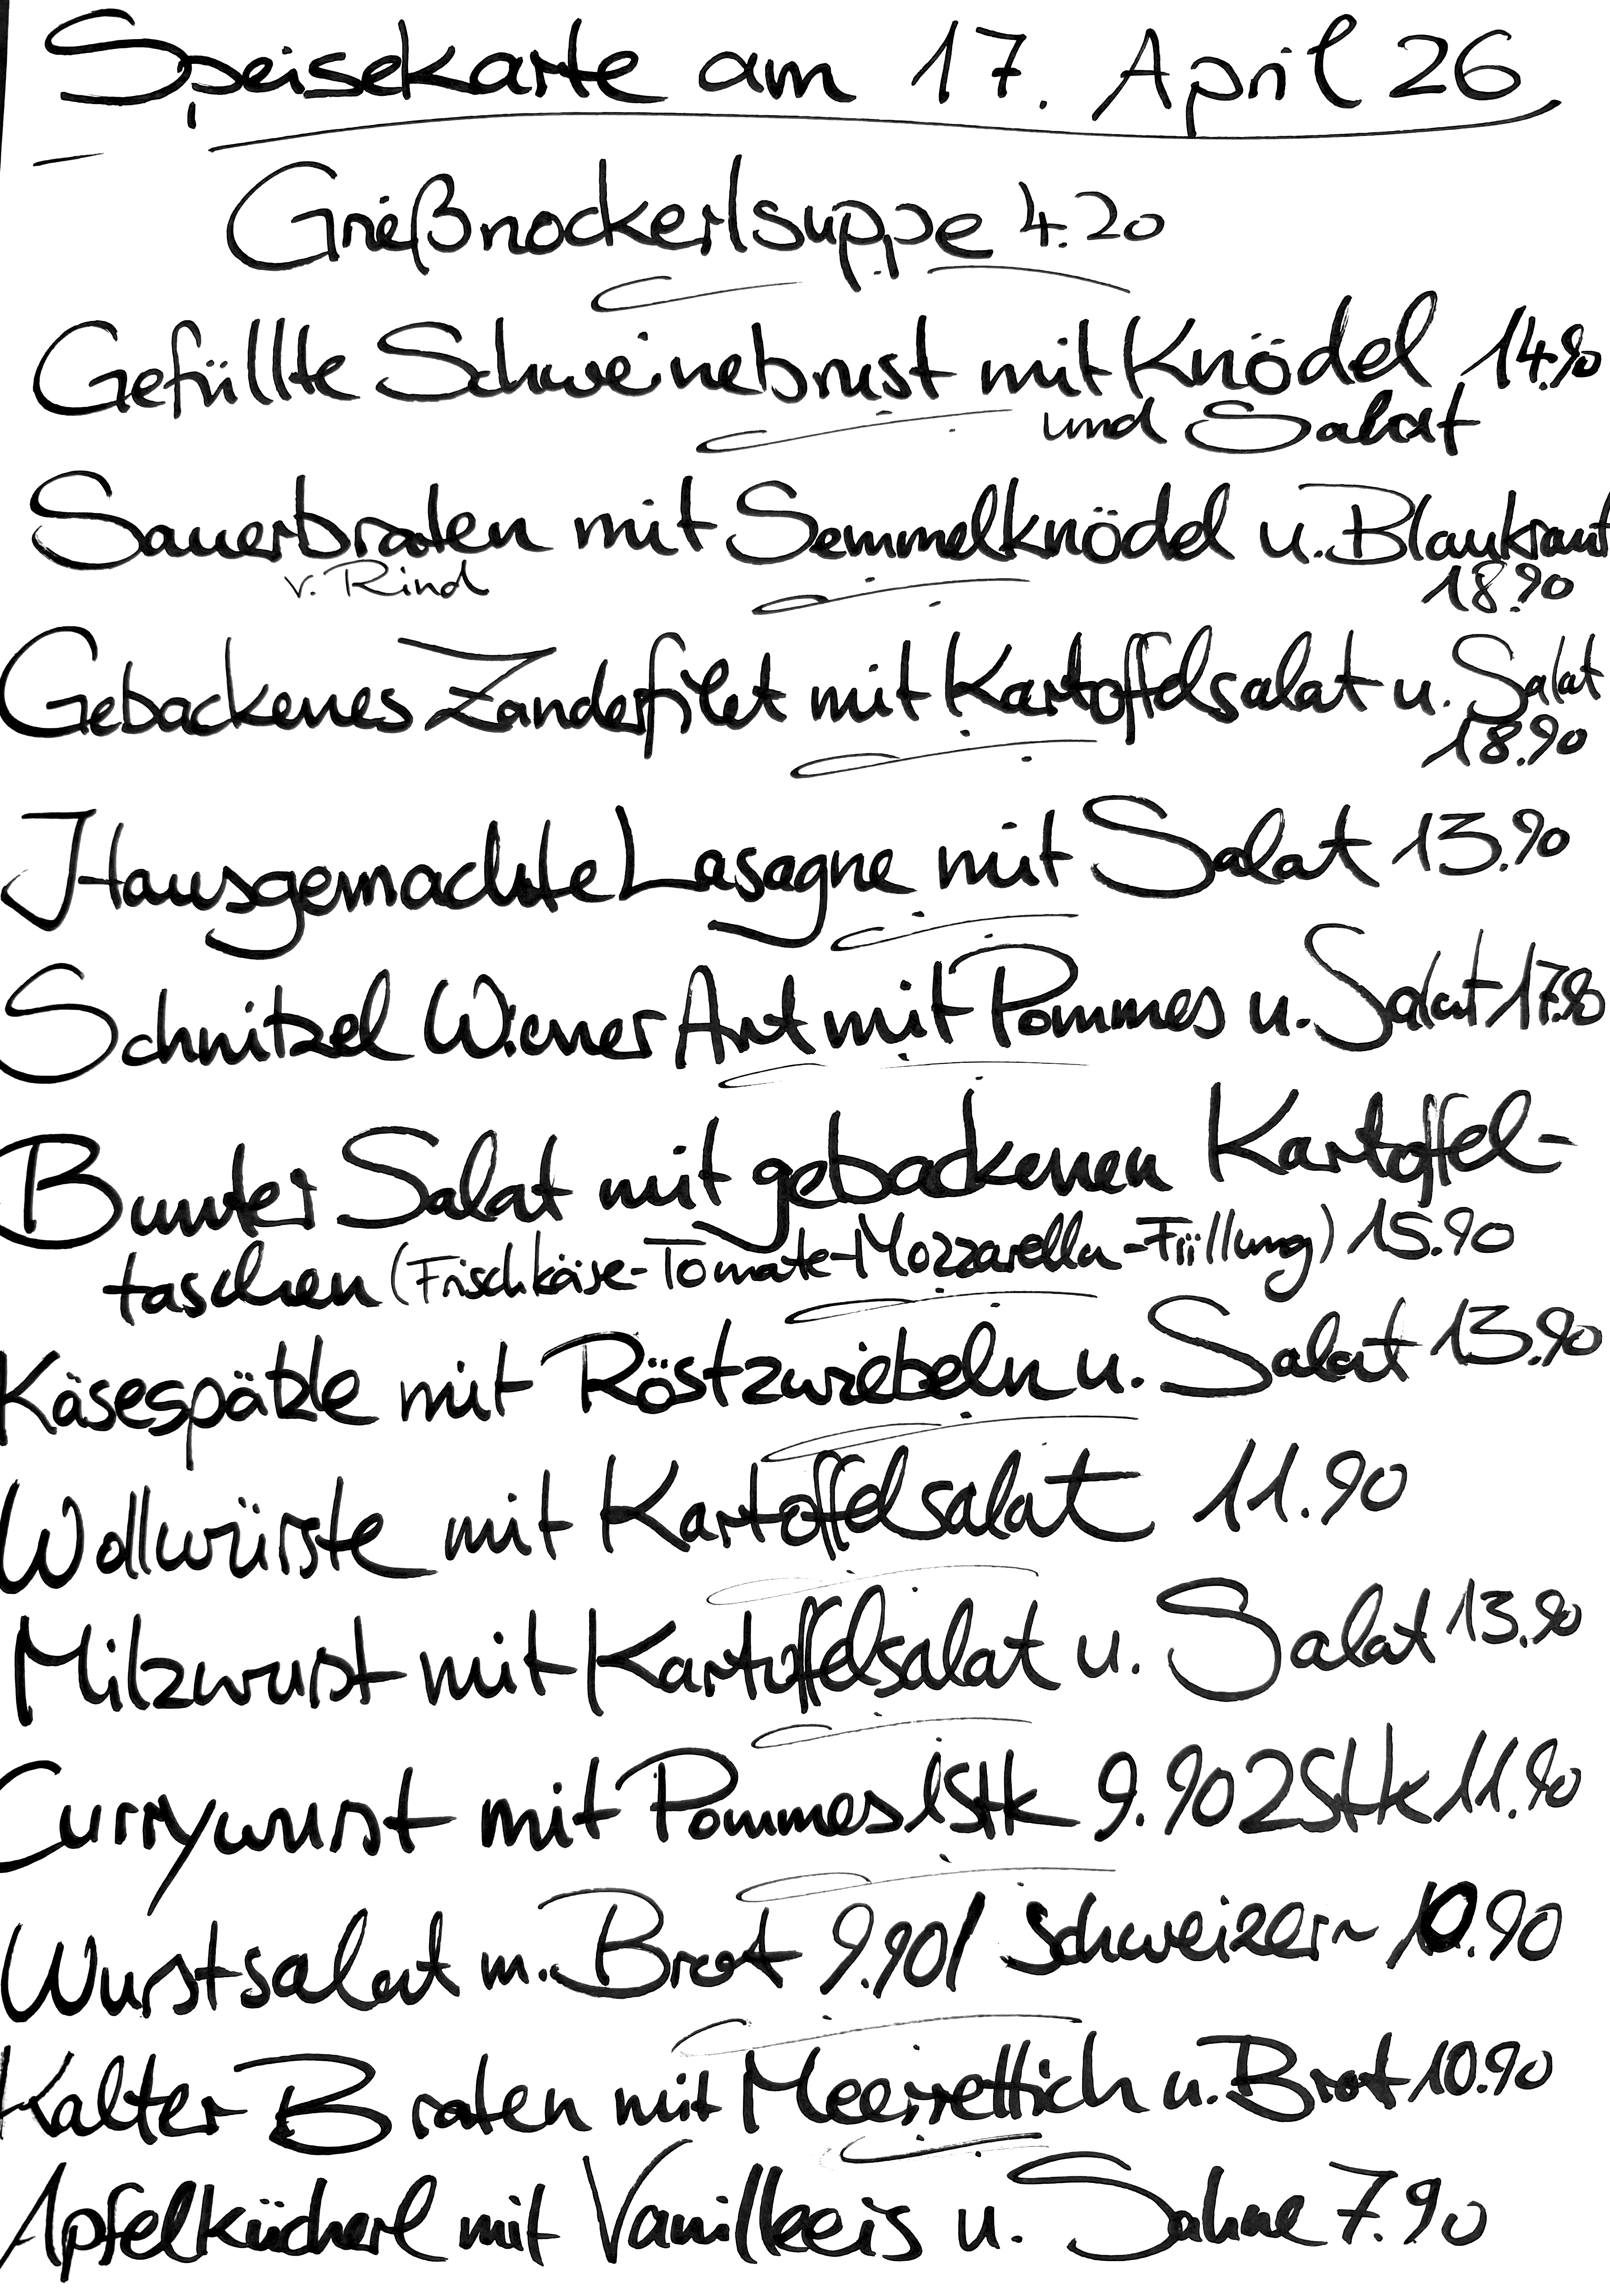 Speisekarte am 17. April 26
Grießnockerlsuppe 4.20
Gefüllte Schweinebrust mit Knödel 14.90
und Salat
Sauerbraten mit Semmelknödel u. Blaukraut
v. Rind 18.90
Gebackenes Zanderfilet mit Kartoffelsalat u. Salat
18.90
Hausgemachte Lasagne mit Salat 13.90
Schnitzel Wiener Art mit Pommes u. Salat
Bunter Salat mit gebackenen Kartoffel-
taschen (Frischkäse-Tomate-Mozzarella-Füllung) 15.90
Käsespätzle mit Röstzwiebeln u. Salat 13.90
Wollwürste mit Kartoffelsalat 11.90
Milzwurst mit Kartoffelsalat u. Salat 13.90
Currywurst mit Pommes 1Stk 9.90 2Stk 11.90
Wurstsalat m. Brot 9.90 / Schweizer~ 10.90
Kalter Braten mit Meerrettich u. Brot 10.90
Apfelkücherl mit Vanilleeis u. Sahne 7.90